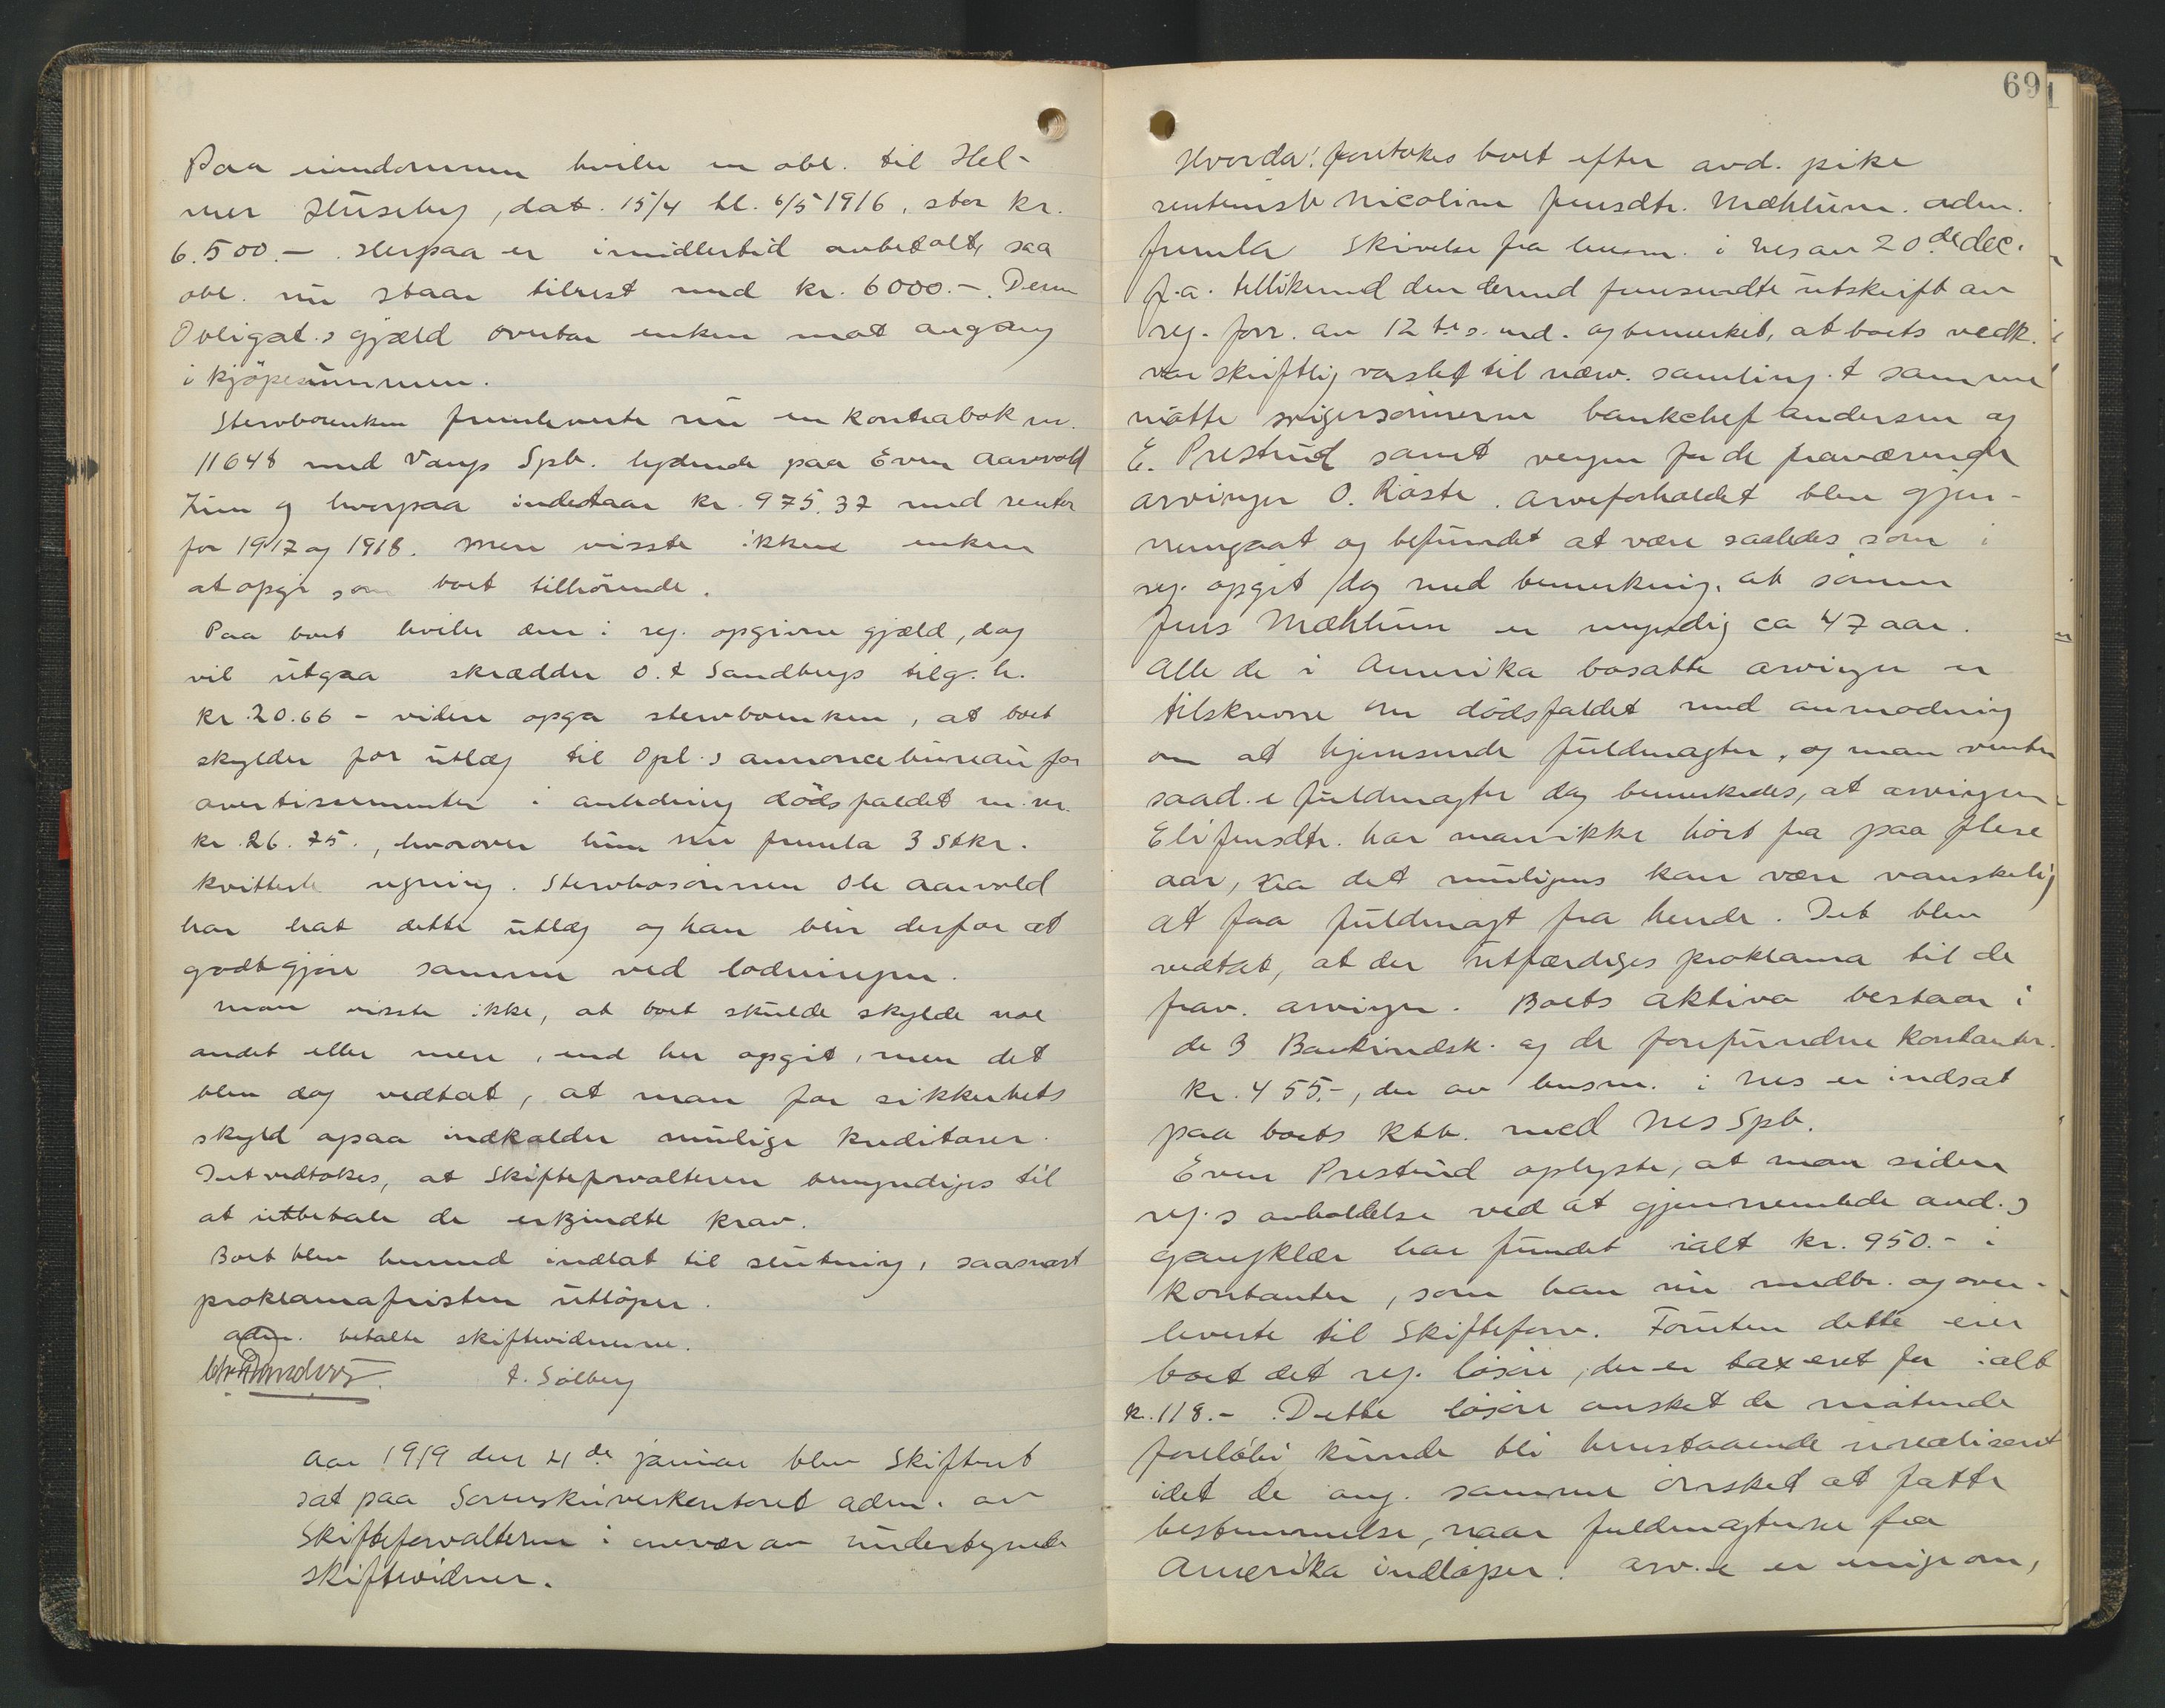 Paa eiendommen hviler en obl. til Hel-
mer Huseby, dat. 15/4 tl. 6/5 1916, stor kr.
6.500.-. Herpaa er imidlertid avbetalt, saa
obl. nu staar tilrest med kr. 6000.-. Denne
Obligat.s gjæld overtar enken mot avgang
i kjøpesummen.
Stervboenken fremleverte nu en kontrabok nr.
11648 med Vangs Spb. lydende paa Even Aarvold
Finn og hvorpaa indestaar kr. 975.37 med renter
for 1917 og 1918. Mere visste ikke enken
at opgi som boet tilhørende.
Paa boet hviler den i reg. opgivne gjæld, dog
vil utgaa skrædder O. t Sandbergs tilg.h.
kr. 20.66 - videre opga stervboenken, at boet
skylder for utlæg til Opl.s annoncebureau for
avertissementer i anledning dødsfaldet m.m.
kr. 26.75., hvorover hun nu fremla 3 stkr.
kvitterte regning. Stervbosønnen Ole Aarvold
har hat dette utlæg og han blir derfor at
godtgjøre samme ved lodningen.
Man visste ikke, at boet skulde skylde noe
andet eller mere, end her opgit, men det
blev dog vedtat, at man for sikkerhets
skyld ogsaa indkalder mulige kreditorer.
Det vedtokes, at Skifteforvalteren bemyndiges til
at utbetale de erkjendte krav.
Boet blev hermed indlat til slutning, saasnart
proklamafristen utløper.
Adm. betalte skiftevidnerne.
t. Solberg
Aar 1919 den 4de januar blev Skifteret
sat paa Sorenskriverkontoret adm. av
Skifteforvalteren i overvær av undertegnede
skiftevidner.
69
Hvorda: foretokes boet efter avd. pike
rentenist Nicoline Jensdtr. Mæhlum. Adm.
fremla Skrivelse fra lensm. i Nes av 20de dec.
f.a. tillikemed den dermed fremsendte utskrift av
reg. forr. av 12te s.md. og bemerket, at boets vedk.
var skriftlig varslet til nærv. samling. t samme
møtte svigersønnerne bankchef Andersen og
E. Prestrud samt vergen for de fraværende
arvinger O. Røste. Arveforholdet blev gjen-
nemgaat og befundet at være saaledes som i
reg. opgit dog med bemerkning, at sønnen
Jens Mæhlum er myndig ca 47 aar.
Alle de i Amerika bosatte arvinger er
tilskrevne om dødsfaldet med anmodning
om at hjemsende fuldmagter, og man venter
saad.e fuldmagter dog bemerkedes, at arvingen
Eli Jensdtr. har man ikke hørt fra paa flere
aar, saa det muligens kan være vanskelig
at faa fuldmagt fra hende. Det blev
vedtat, at der utfærdiges proklama til de
frav. arvinger. Boets aktiva bestaar i
de 3 Bankindsk. og de forefundne kontanter
kr. 455.-, der av lensm. i Nes er indsat
paa boets ktb. med Nes Spb.
Even Prestrud oplyste, at man siden
reg.s avholdelse ved at gjennemlede avd.s
gangklær har fundet ialt kr. 950.- i
kontanter, som han nu medbr. og over-
leverte til Skifteforv. Foruten dette eier
boet det reg. løsøre, der er taxeret for ialt
kr. 118.-. Dette løsøre ønsket de møtende
foreløbi kunde bli henstaaende urealisert
idet de ang. samme ønsket at fatte
bestemmelse, naar fuldmagterne fra
Amerika indløper. Arv.e er enige om,